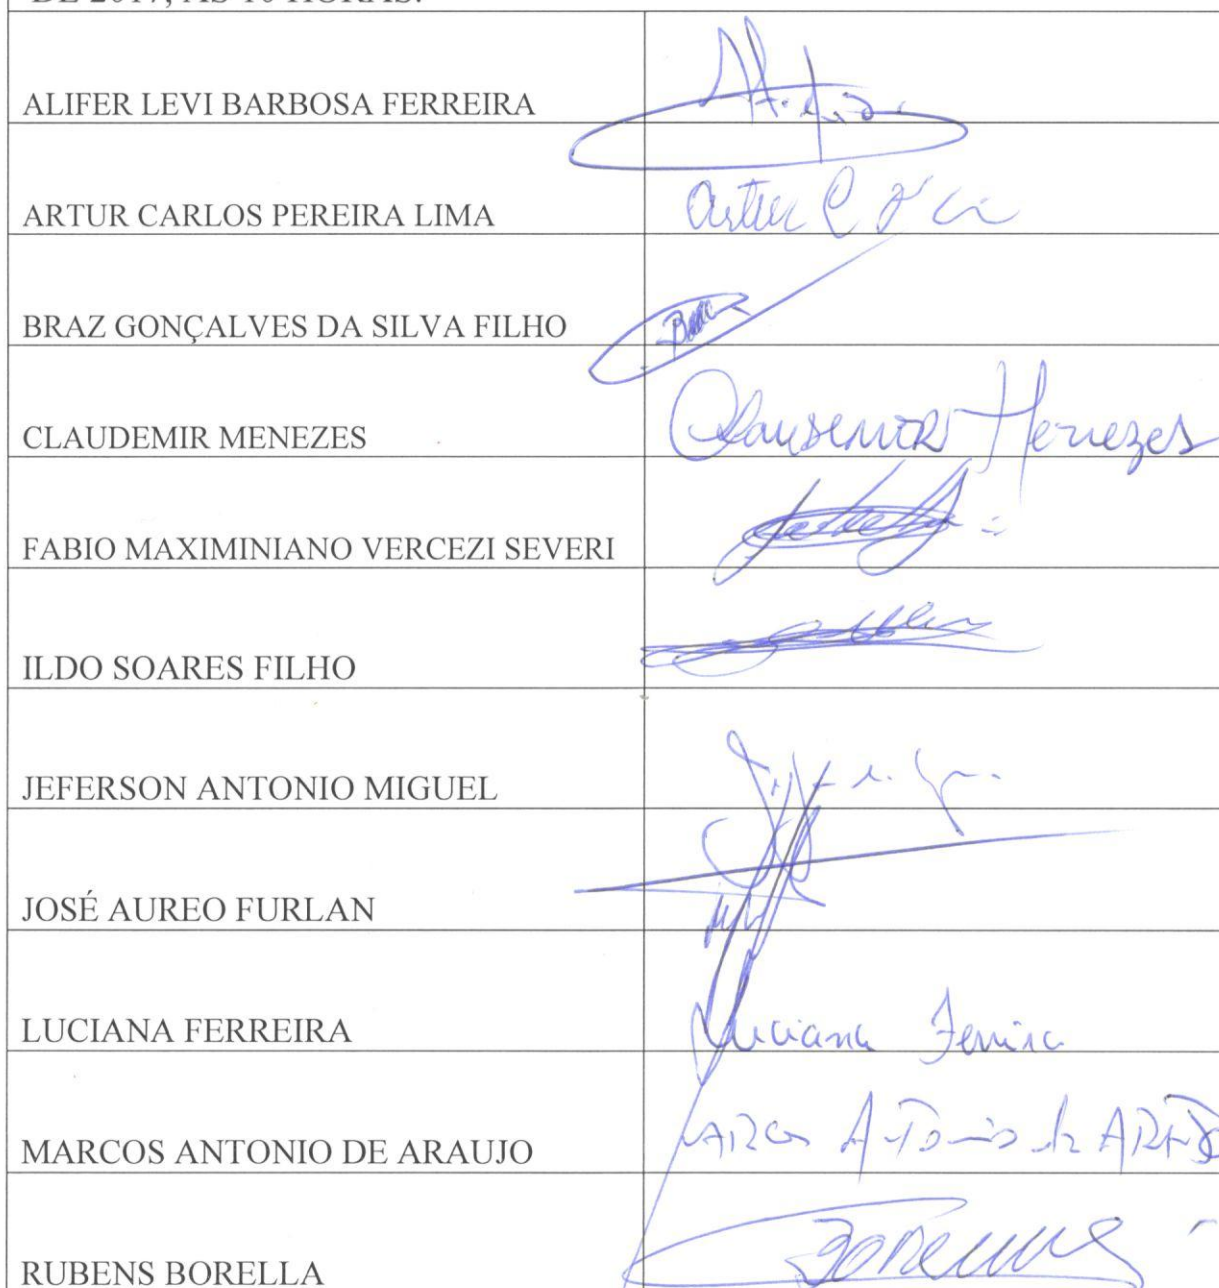 DE 2017, ÀS 10 HORAS.
ALIFER LEVI BARBOSA FERREIRA
ARTUR CARLOS PEREIRA LIMA Artur C
BRAZ GONÇALVES DA SILVA FILHO Braz
CLAUDEMIR MENEZES Claudemir Menezes
FABIO MAXIMINIANO VERCEZI SEVERI
ILDO SOARES FILHO
JEFERSON ANTONIO MIGUEL
JOSÉ AUREO FURLAN
LUCIANA FERREIRA Luciana Ferreira
MARCOS ANTONIO DE ARAUJO MARCOS ANTONIO de ARAUJO
RUBENS BORELLA Borella